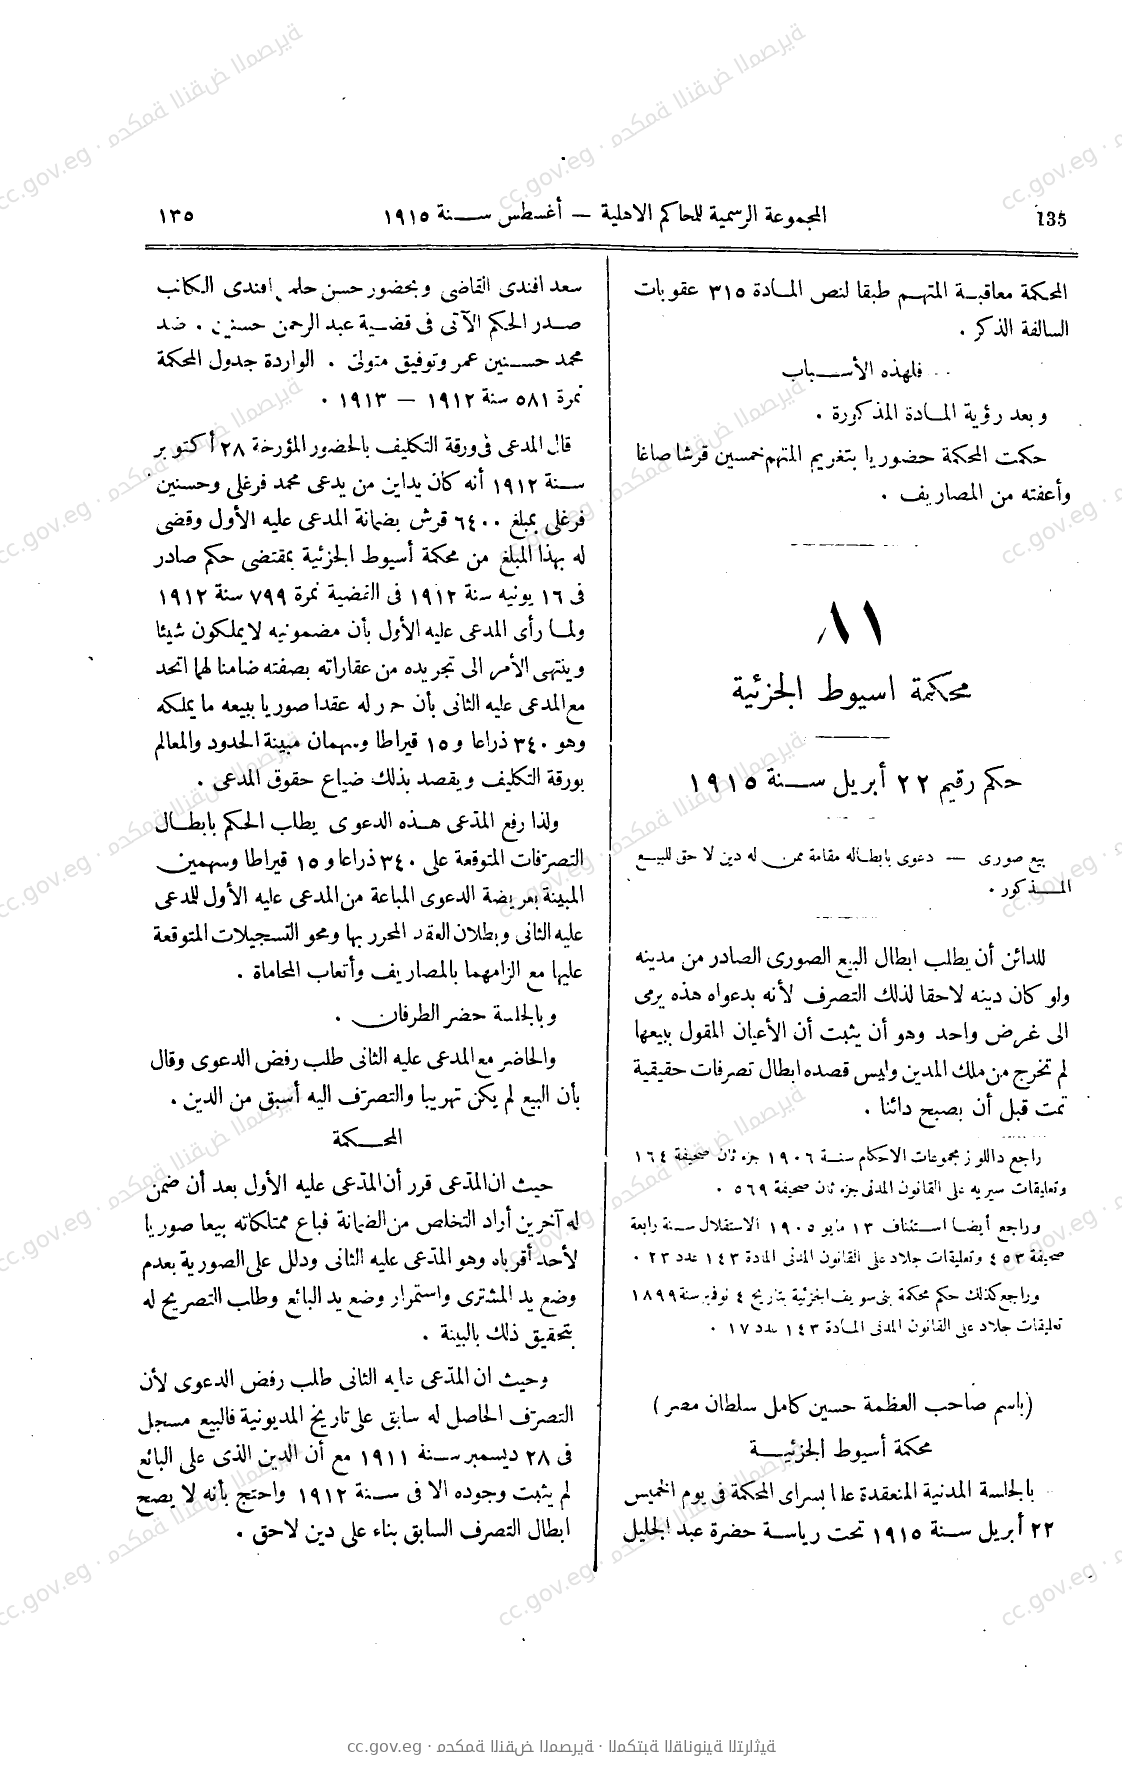 135
المجموعة الرسمية للمحاكم الاهلية — أغسطس سنة ١٩١٥
١٣٥
المحكمة معاقبة المتهم طبقا لنص المادة ٣١٥ عقوبات
السالفة الذكر .
فلهذه الأسباب
وبعد رؤية المادة المذكورة .
حكمت المحكمة حضوريا بتغريم المتهم خمسين قرشا صاغا
وأعفته من المصاريف .
٨١
محكمة اسيوط الجزئية
حكم رقيم ٢٢ أبريل سنة ١٩١٥
بيع صورى — دعوى بابطاله مقامة ممن له دين لاحق للبيع
المذكور .
للدائن أن يطلب ابطال البيع الصورى الصادر من مدينه
ولو كان دينه لاحقا لذلك التصرف لأنه بدعواه هذه يرمى
الى غرض واحد وهو أن يثبت أن الأعيان المقول ببيعها
لم تخرج من ملك المدين وليس قصده ابطال تصرفات حقيقية
تمت قبل أن يصبح دائنا .
راجع داللوز مجموعات الاحكام سنة ١٩٠٦ جزء ثان صحيفة ١٦٤
وتعليقات سيريه على القانون المدنى جزء ثان صحيفة ٥٦٩ .
وراجع أيضا استئناف ١٣ مايو ١٩٠٥ الاستقلال سنة رابعة
صحيفة ٤٥٣ وتعليقات جلاد على القانون المدنى المادة ١٤٣ عدد ٢٣ .
وراجع كذلك حكم محكمة بنى سويف الجزئية بتاريخ ٤ نوفمبر سنة ١٨٩٩
تعليقات جلاد على القانون المدنى المادة ١٤٣ عدد ١٧ .
(باسم صاحب العظمة حسين كامل سلطان مصر)
محكمة أسيوط الجزئية
بالجلسة المدنية المنعقدة علنا بسراى المحكمة فى يوم الخميس
٢٢ أبريل سنة ١٩١٥ تحت رياسة حضرة عبد الجليل
سعد افندى القاضى وبحضور حسن حلمى افندى الكاتب
صدر الحكم الآتى فى قضية عبد الرحمن حسنين . ضد
محمد حسنين عمر وتوفيق متولى . الواردة جدول المحكمة
نمرة ٥٨١ سنة ١٩١٢ — ١٩١٣ .
قال المدعى فى ورقة التكليف بالحضور المؤرخة ٢٨ أكتوبر
سنة ١٩١٢ أنه كان يداين من يدعى محمد فرغلى وحسنين
فرغلى بمبلغ ٦٤٠٠ قرش بضمانة المدعى عليه الأول وقضى
له بهذا المبلغ من محكمة أسيوط الجزئية بمقتضى حكم صادر
فى ١٦ يونيه سنة ١٩١٢ فى القضية نمرة ٧٩٩ سنة ١٩١٢
ولما رأى المدعى عليه الأول بأن مضمونيه لا يملكون شيئا
وينتهى الأمر الى تجريده من عقاراته بصفته ضامنا لهما اتحد
مع المدعى عليه الثانى بأن حرر له عقدا صوريا ببيعه ما يملكه
وهو ٣٤٠ ذراعا و ١٥ قيراطا وسهمان مبينة الحدود والمعالم
بورقة التكليف ويقصد بذلك ضياع حقوق المدعى .
ولذا رفع المدّعى هذه الدعوى يطلب الحكم بابطال
التصرّفات المتوقعة على ٣٤٠ ذراعا و ١٥ قيراطا وسهمين
المبينة بعريضة الدعوى المباعة من المدعى عليه الأول للمدعى
عليه الثانى وبطلان العقد المحرر بها ومحو التسجيلات المتوقعة
عليها مع الزامهما بالمصاريف وأتعاب المحاماة .
وبالجلسة حضر الطرفان .
والحاضر مع المدعى عليه الثانى طلب رفض الدعوى وقال
بأن البيع لم يكن تهريبا والتصرّف اليه أسبق من الدين .
المحكمة
حيث ان المدّعى قرر أن المدّعى عليه الأول بعد أن ضمن
له آخرين أراد التخلص من الضمانة فباع ممتلكاته بيعا صوريا
لأحد أقرباه وهو المدّعى عليه الثانى ودلل على الصورية بعدم
وضع يد المشترى واستمرار وضع يد البائع وطلب التصريح له
بتحقيق ذلك بالبينة .
وحيث ان المدّعى عليه الثانى طلب رفض الدعوى لأن
التصرّف الحاصل له سابق على تاريخ المديونية فالبيع مسجل
فى ٢٨ ديسمبر سنة ١٩١١ مع أن الدين الذى على البائع
لم يثبت وجوده الا فى سنة ١٩١٢ واحتج بأنه لا يصح
ابطال التصرف السابق بناء على دين لاحق .
cc.gov.eg · محكمة النقض المصرية · المكتبة القانونية التراثية